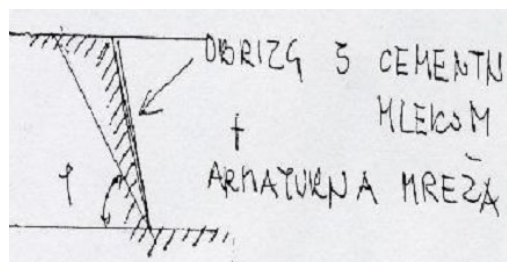 OBRIZG S CEMENTN
MLEKOM
+
ARMATURNA MREŽA
φ